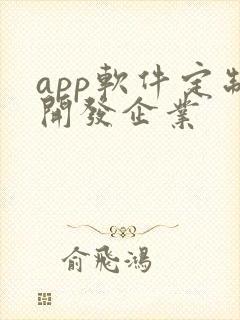 app軟件定制
開發企業
俞飛鴻